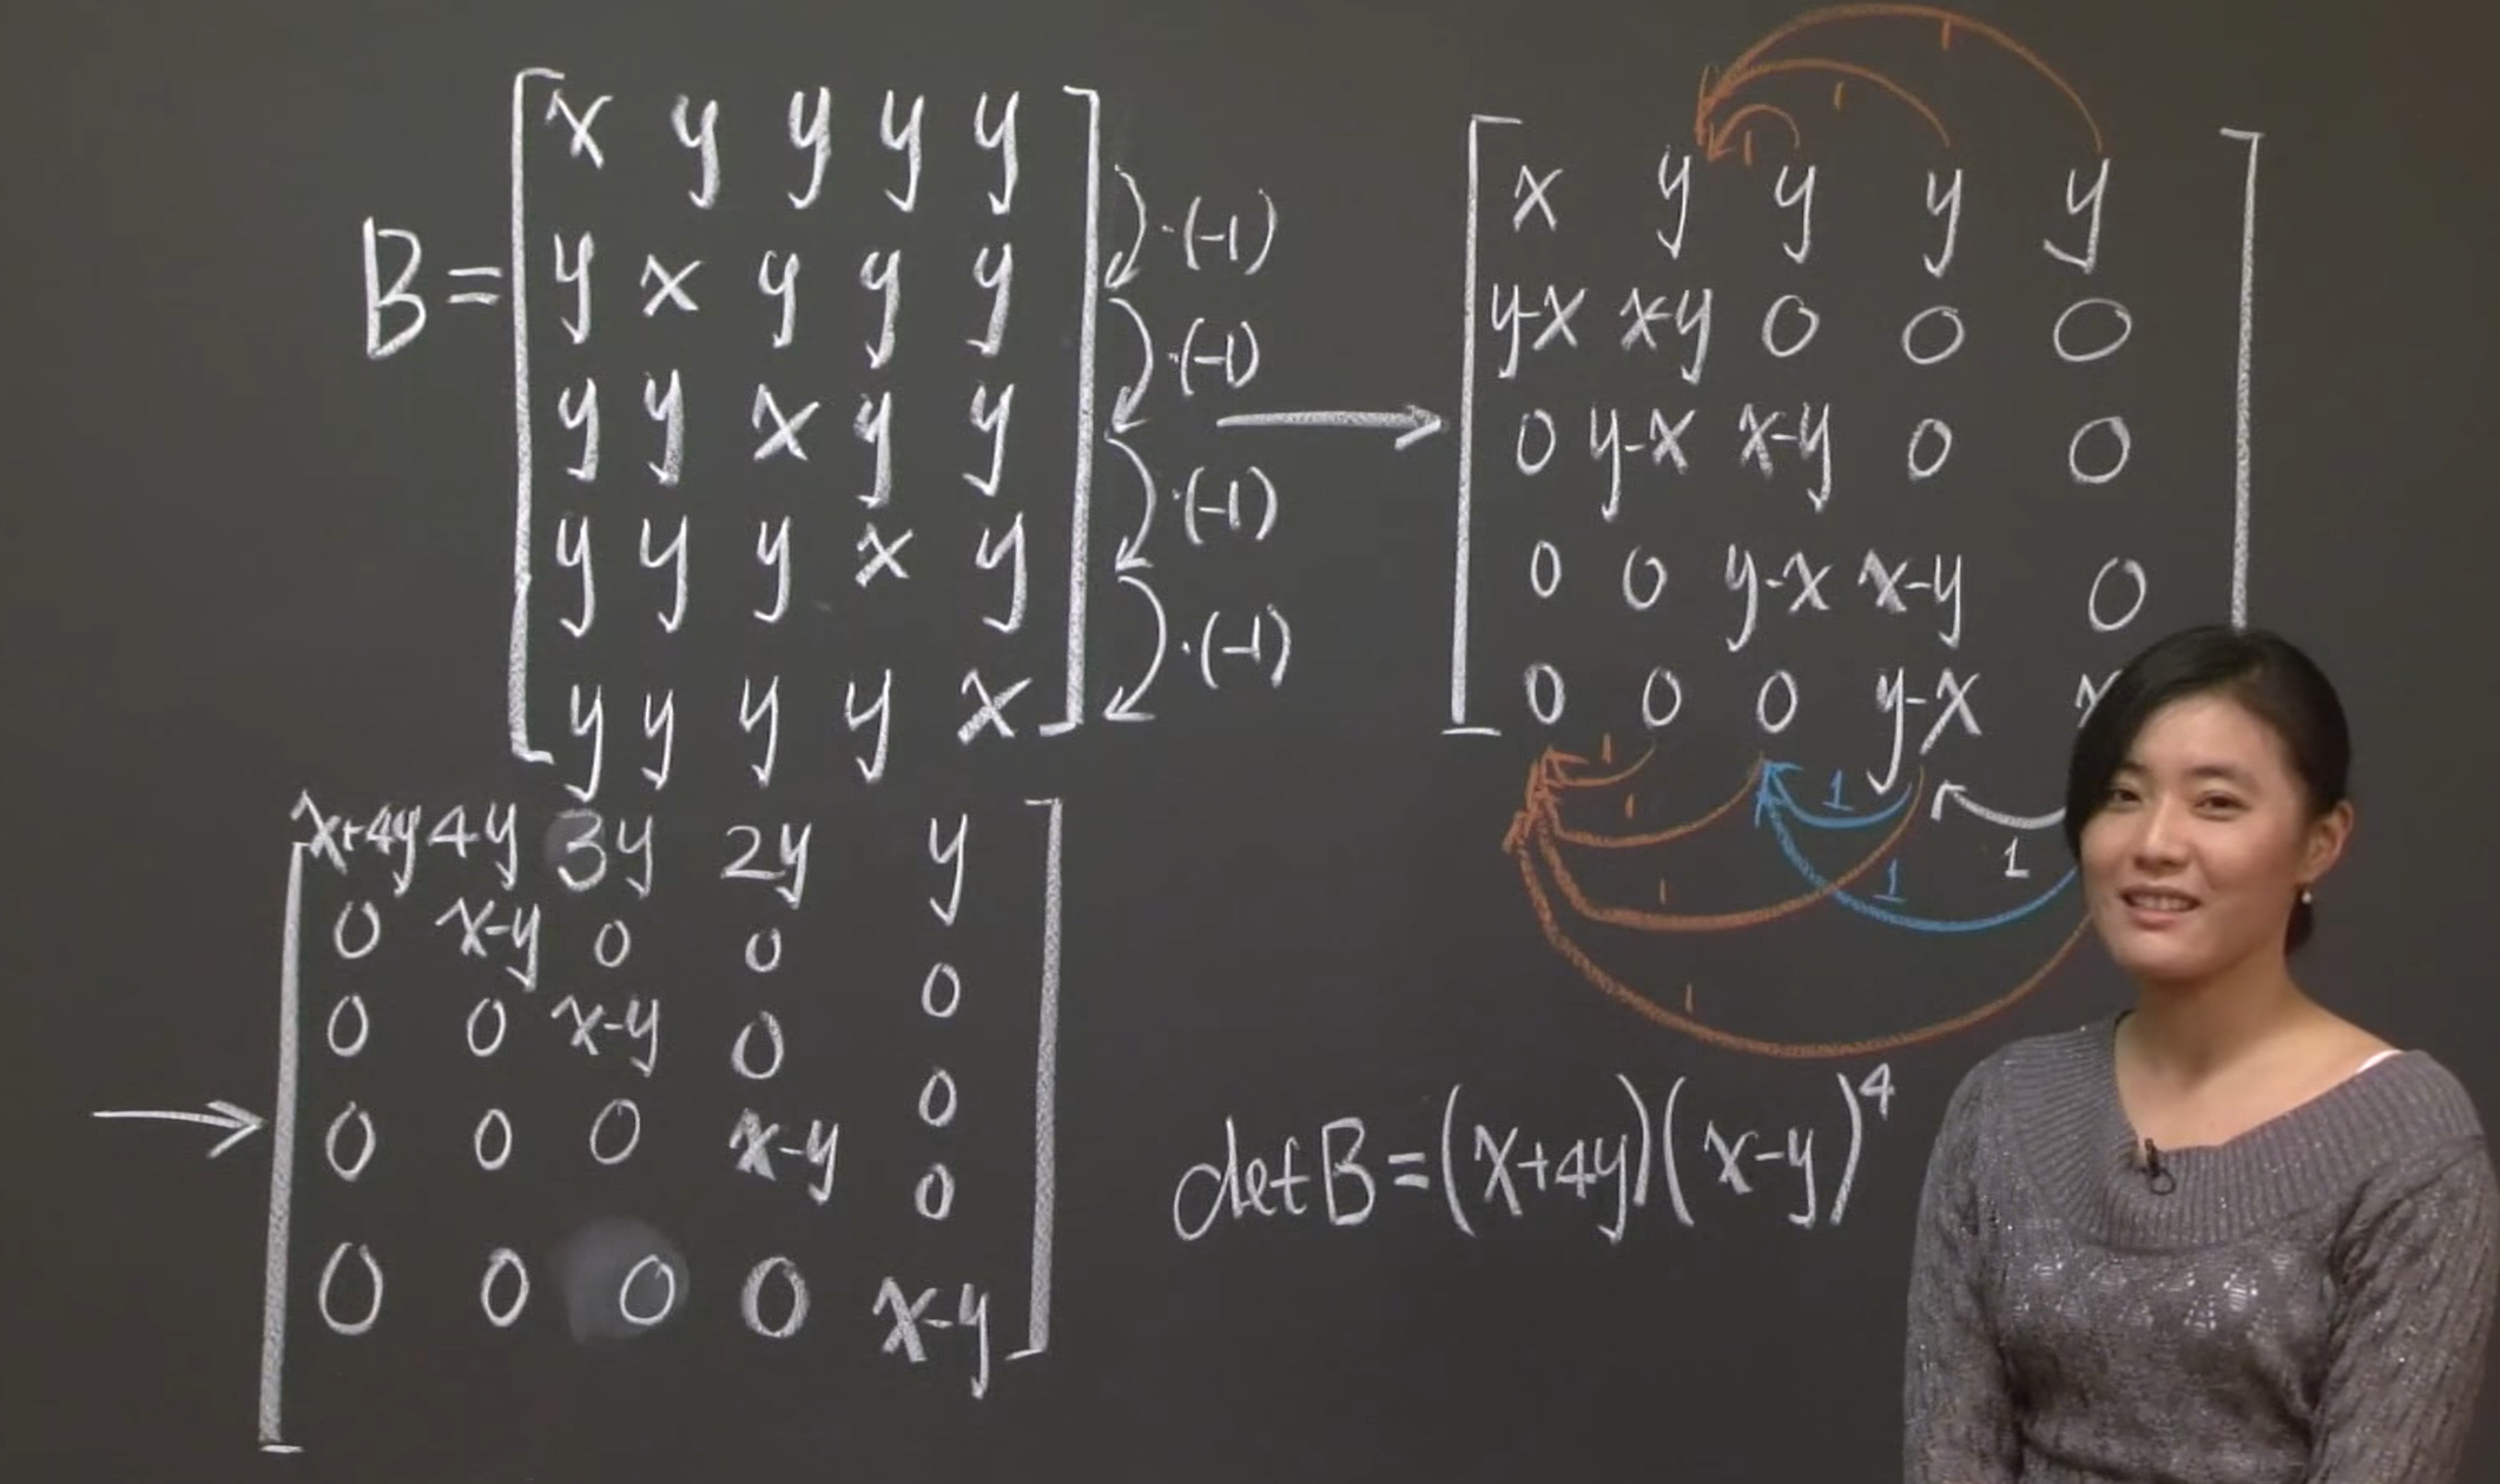 B = [ x y y y y
y x y y y
y y x y y
y y y x y
y y y y x ]
·(-1)
·(-1)
·(-1)
·(-1)
→
1
1
1
[ x y y y y
y-x x-y 0 0 0
0 y-x x-y 0 0
0 0 y-x x-y 0
0 0 0 y-x
1
1
1
1
1
1
1
→ [ x+4y 4y 3y 2y y
0 x-y 0 0 0
0 0 x-y 0 0
0 0 0 x-y 0
0 0 0 0 x-y ]
det B = (x+4y)(x-y)^4